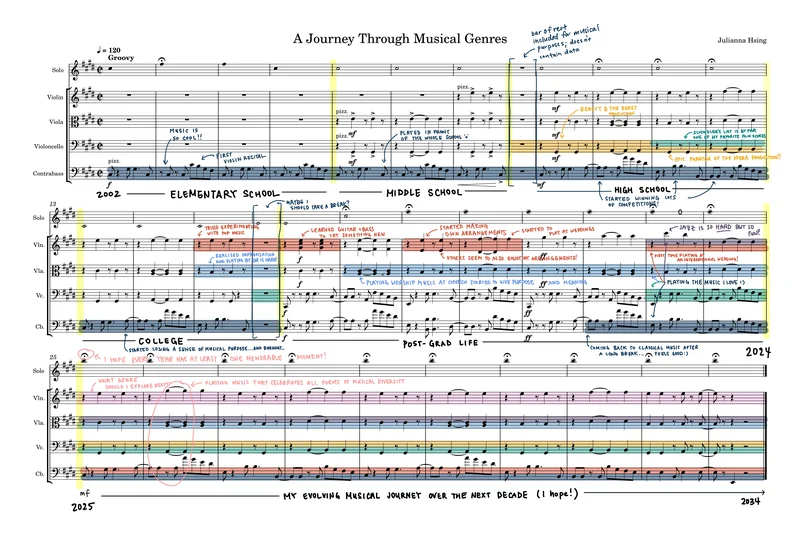 A Journey Through Musical Genres
Julianna Hsing
♩ = 120
Groovy
bar of rest
included for musical
purposes; doesn't
contain data
Solo
Violin
Viola
Violoncello
Contrabass
pizz.
pizz.
pizz.
mf
mf
mf
mf
mf
MUSIC IS
SO COOL!!
FIRST
VIOLIN RECITAL
PLAYED IN FRONT
OF THE WHOLE SCHOOL
BEAUTY & THE BEAST
PRODUCTION
SCHINDLER'S LIST IS BY FAR
ONE OF MY FAVORITE FILM SCORES
EPIC PHANTOM OF THE OPERA PRODUCTION!!
STARTED WINNING LOTS
OF COMPETITIONS!
2002
ELEMENTARY SCHOOL
MIDDLE SCHOOL
HIGH SCHOOL
13
MAYBE I
SHOULD TAKE A BREAK?
Solo
Vln.
Vla.
Vc.
Cb.
TRIED EXPERIMENTING
WITH POP MUSIC
REALIZED IMPROVISATION
AND PLAYING BY EAR IS HARD
LEARNED GUITAR + BASS
TO TRY SOMETHING NEW
STARTED MAKING
OWN ARRANGEMENTS
STARTED TO
PLAY AT WEDDINGS
OTHERS SEEM TO ALSO ENJOY MY ARRANGEMENTS!
PLAYING WORSHIP MUSIC AT CHURCH STARTED TO GIVE PURPOSE AND MEANING
JAZZ IS SO HARD BUT SO
FUN!
FIRST TIME PLAYING AT
AN INTERNATIONAL WEDDING!
PLAYING THE MUSIC I LOVE :)
f
f
f
f
ff
ff
ff
ff
COLLEGE
STARTED LOSING A SENSE OF MUSICAL PURPOSE... AND BURNOUT...
POST-GRAD LIFE
COMING BACK TO CLASSICAL MUSIC AFTER
A LONG BREAK... FEELS GOOD :)
2024
25
I HOPE EVERY YEAR HAS AT LEAST ONE MEMORABLE MOMENT!
Solo
Vln.
Vla.
Vc.
Cb.
WHAT GENRE
SHOULD I EXPLORE NEXT?
PLAYING MUSIC THAT CELEBRATES ALL FORMS OF MUSICAL DIVERSITY
mf
MY EVOLVING MUSICAL JOURNEY OVER THE NEXT DECADE (I hope!)
2025
2034